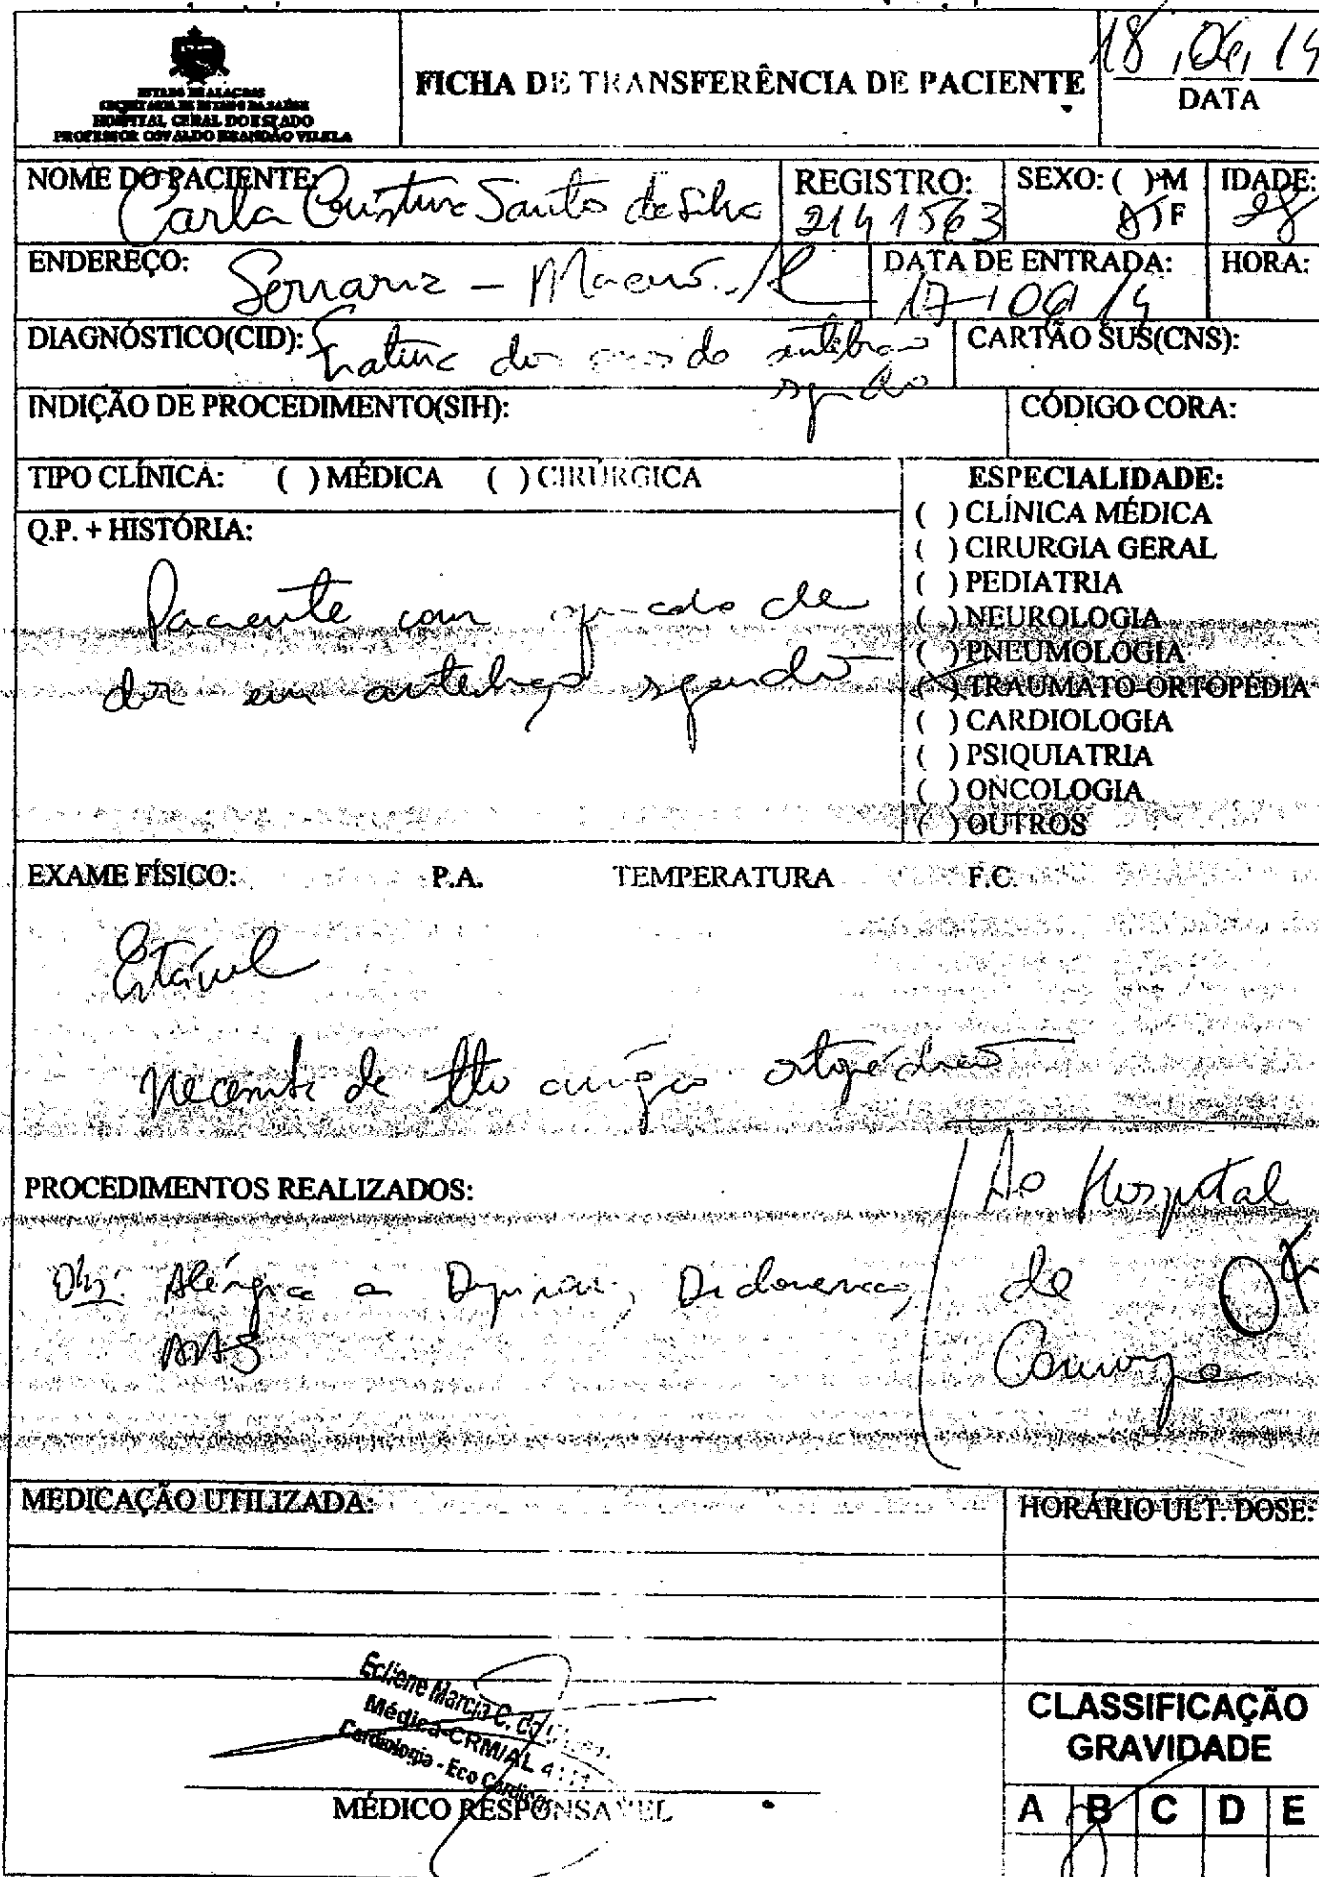 ESTADO DE ALAGOAS
SECRETARIA DE ESTADO DA SAÚDE
HOSPITAL GERAL DO ESTADO
PROFESSOR OSVALDO BRANDÃO VILELA
FICHA DE TRANSFERÊNCIA DE PACIENTE
18, 06, 14
DATA
NOME DO PACIENTE:
Carla Cristina Santos da Silva
REGISTRO:
2141563
SEXO: ( ) M
(X) F
IDADE:
28
ENDEREÇO:
Serraria - Maceió. Al
DATA DE ENTRADA:
17-106/14
HORA:
DIAGNÓSTICO(CID):
Fratura dos ossos do antebraço
esquerdo
CARTÃO SUS(CNS):
INDIÇÃO DE PROCEDIMENTO(SIH):
CÓDIGO CORA:
TIPO CLÍNICA: ( ) MÉDICA ( ) CIRÚRGICA
Q.P. + HISTÓRIA:
Paciente com quadro de
dor em antebraço esquerdo
ESPECIALIDADE:
( ) CLÍNICA MÉDICA
( ) CIRURGIA GERAL
( ) PEDIATRIA
( ) NEUROLOGIA
( ) PNEUMOLOGIA
(X) TRAUMATO-ORTOPEDIA
( ) CARDIOLOGIA
( ) PSIQUIATRIA
( ) ONCOLOGIA
( ) OUTROS
EXAME FÍSICO: P.A. TEMPERATURA F.C.
Estável
Necessita de tto cirúrgico ortopédico
PROCEDIMENTOS REALIZADOS:
Obs: Alérgica a Dipirona, Diclofenaco,
AAS
Ao Hospital
de
MEDICAÇÃO UTILIZADA:
HORÁRIO ULT. DOSE:
Ecliene Marcia C. da
Médica-CRM/AL
Cardiologia - Eco
MÉDICO RESPONSAVEL
CLASSIFICAÇÃO
GRAVIDADE
A B C D E